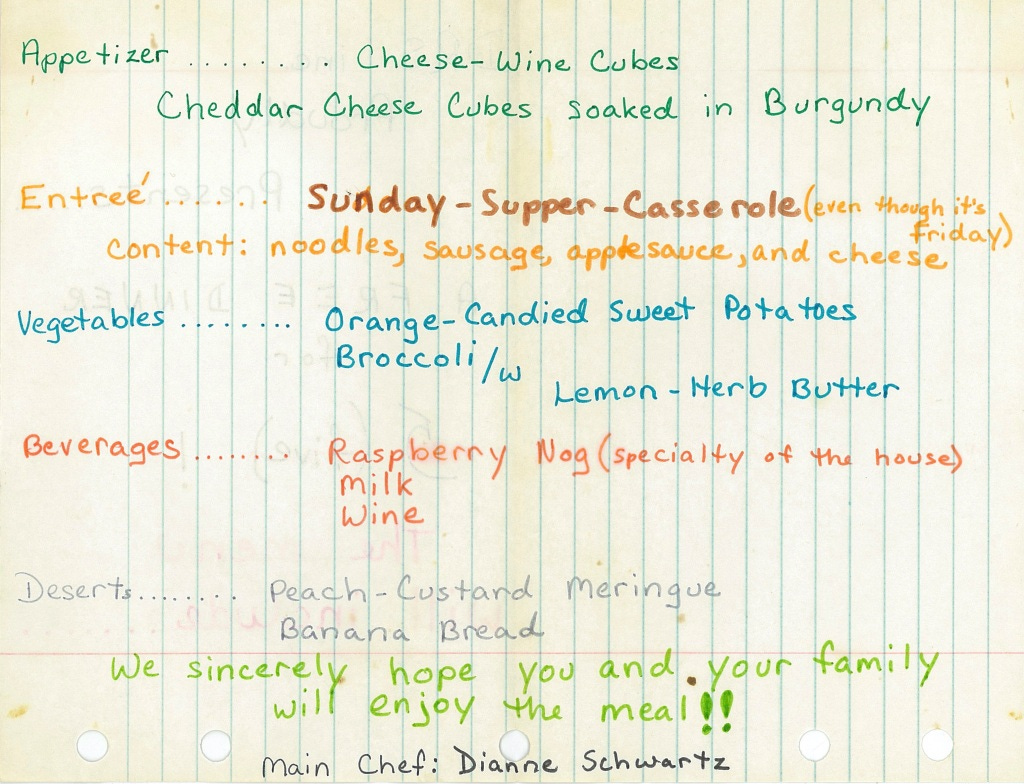 Appetizer ........ Cheese-Wine Cubes
Cheddar Cheese Cubes soaked in Burgundy
Entreé ...... Sunday-Supper-Casserole (even though it's
friday)
content: noodles, sausage, applesauce, and cheese
Vegetables ........ Orange-Candied Sweet Potatoes
Broccoli /w
Lemon-Herb Butter
Beverages ....... Raspberry Nog (specialty of the house)
Milk
Wine
Deserts........ Peach-Custard Meringue
Banana Bread
We sincerely hope you and your family
will enjoy the meal!!
Main Chef: Dianne Schwartz